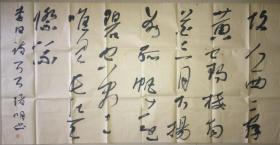 故人西辞
黄鹤楼烟
花三月下揚
州孤帆远影
碧空尽
唯见长江天
際流
李白詩